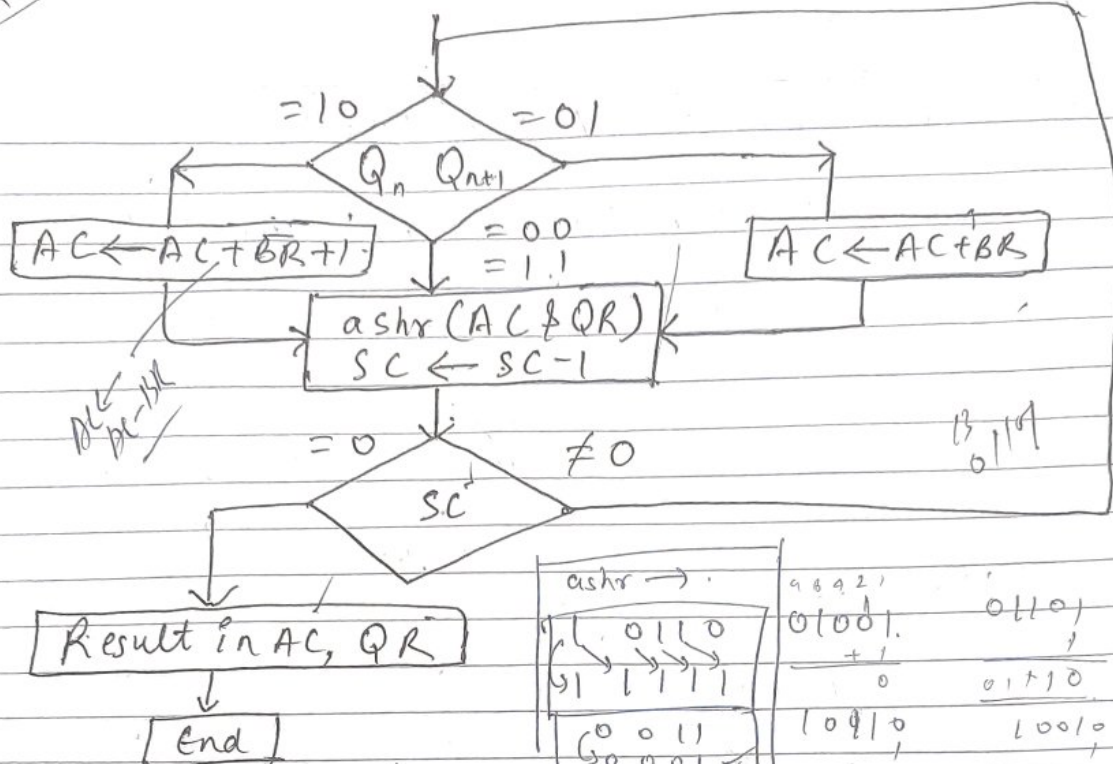 = 10
= 01
Qn Qn+1
AC ← AC + B̅R̅ + 1
= 00
= 1.1
AC ← AC + BR
ashr (AC & QR)
SC ← SC - 1
= 0
≠ 0
SC
Result in AC, QR
End
ashr →
1 0110
1 1 1 1 1
0 0 1 1
01001
+ 1
0
10010
01101
1
01110
10010